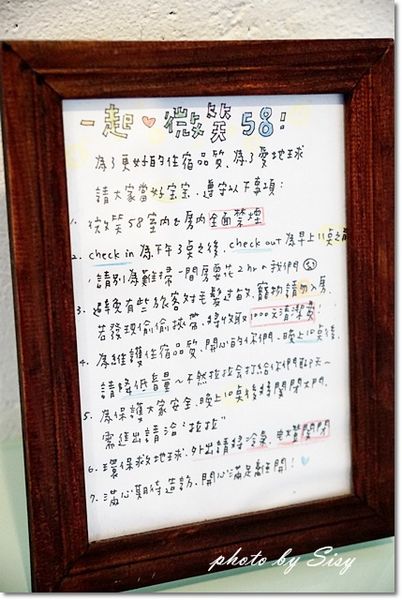 一起♡微笑58:
為了更好的住宿品質、為了愛地球
請大家當好宝宝、遵守以下事項:
1. 微笑58室內也房內全面禁煙
2. check in 為下午3點之後、check out 為早上11點之前
請別為難掃一間房要花2hr的我們
3. 避免有些旅客對毛髮過敏、寵物請勿入房
若發現偷偷挾帶、將收取1000元清潔費!
4. 為維護住宿品質、開心的你們、晚上10點後
請降低音量~不然拉拉會打給你們聊天~
5. 為保護大家安全、晚上10點後將關閉大門、
需進出請洽"拉拉"
6. 環保救地球、外出請將冷氣、電燈關閉
7. 滿心期待造訪、開心滿足離開!♡
photo by Sisy